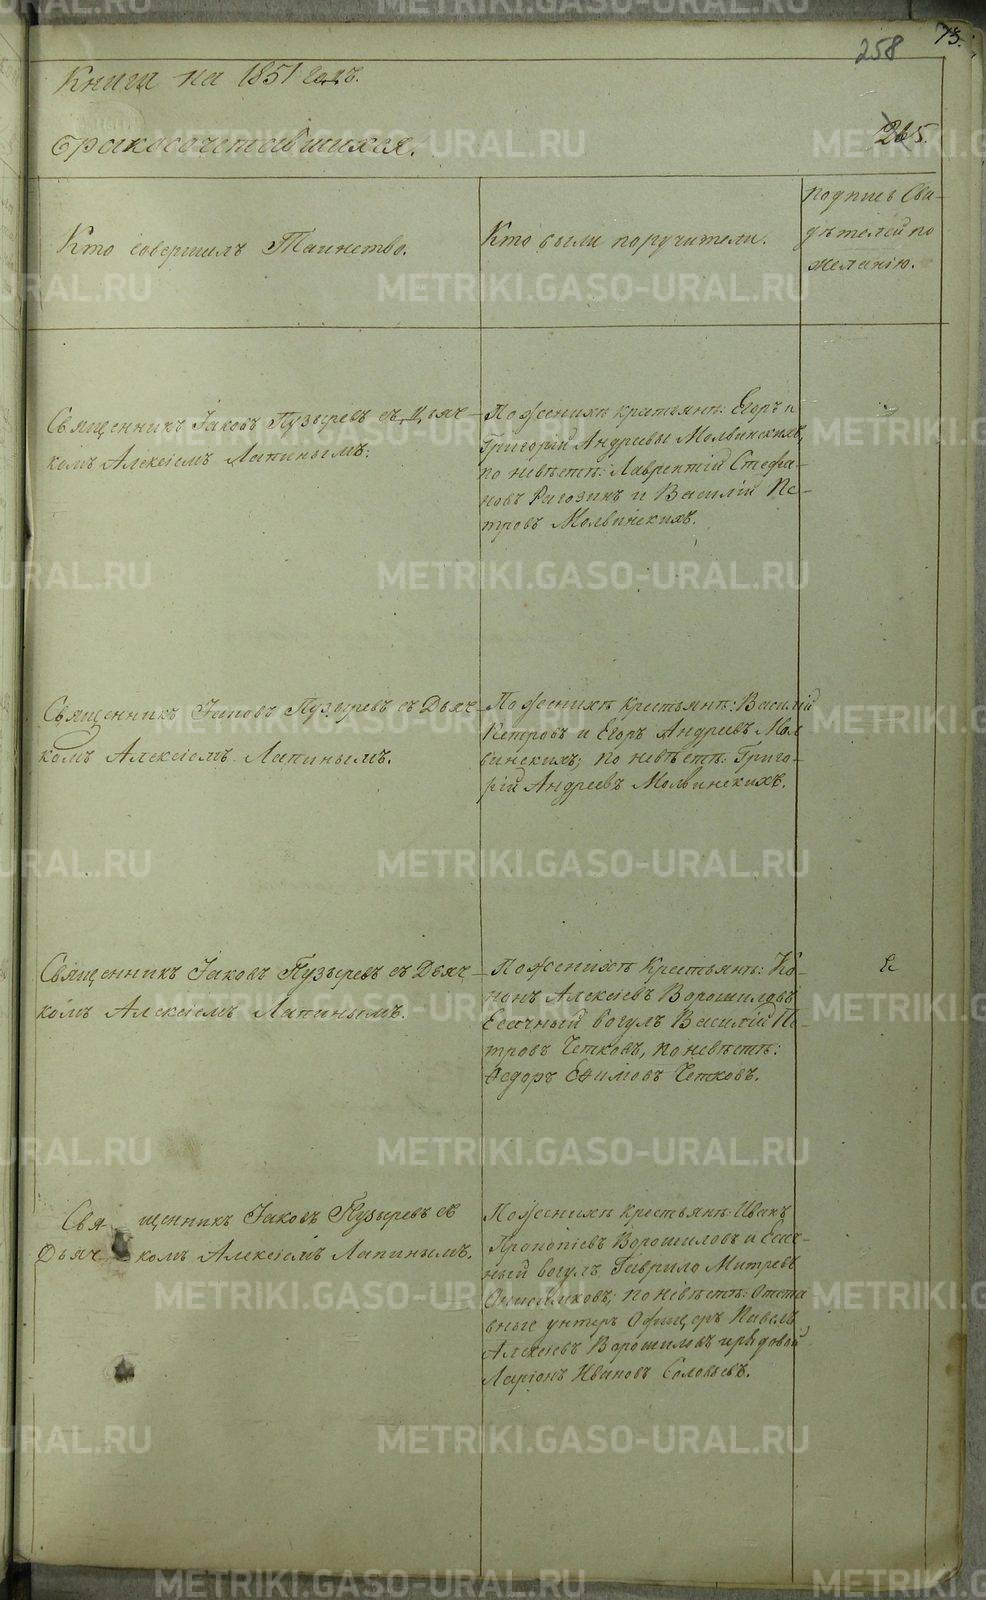 258 73.
Книга на 1851 годъ.
265.
бракосочетавшихся.
Кто совершилъ Таинство.
Кто были поручители.
Подпись Сви-
дѣтелей по
желанію.
Священникъ Іаковъ Пузыревъ съ Дьяч-
комъ Алексіемъ Лапинымъ.
По женихѣ крестьяне: Егоръ и
Григорій Андреевы Молвинскихъ,
по невѣстѣ: Лаврентій Стефа-
новъ Рагозинъ и Василій Пе-
тровъ Молвинскихъ.
Священникъ Іаковъ Пузыревъ съ Дьяч-
комъ Алексіемъ Лапинымъ.
По женихѣ крестьяне: Василій
Петровъ и Егоръ Андреевъ Мол-
винскихъ; по невѣстѣ: Григо-
рій Андреевъ Молвинскихъ.
Священникъ Іаковъ Пузыревъ съ Дьяч-
комъ Алексіемъ Лапинымъ.
По женихѣ крестьянѣ: Ко-
нонъ Алексіевъ Ворошиловъ
Есачный вогулъ Василій Пе-
тровъ Четковъ, по невѣстѣ:
Ѳедоръ Ефимовъ Четковъ.
Священникъ Іаковъ Пузыревъ съ
Дьячкомъ Алексіемъ Лапинымъ.
По женихѣ крестьянѣ: Иванъ
Прокопіевъ Ворошиловъ и Есач-
ный вогулъ Гаврило Митревъ
по невѣстѣ: Отста
вные унтеръ Офицеръ Павелъ
Алексіевъ Ворошиловъ и рядовой
Ларіонъ Ивановъ Соловьевъ.
METRIKI.GASO-URAL.RU